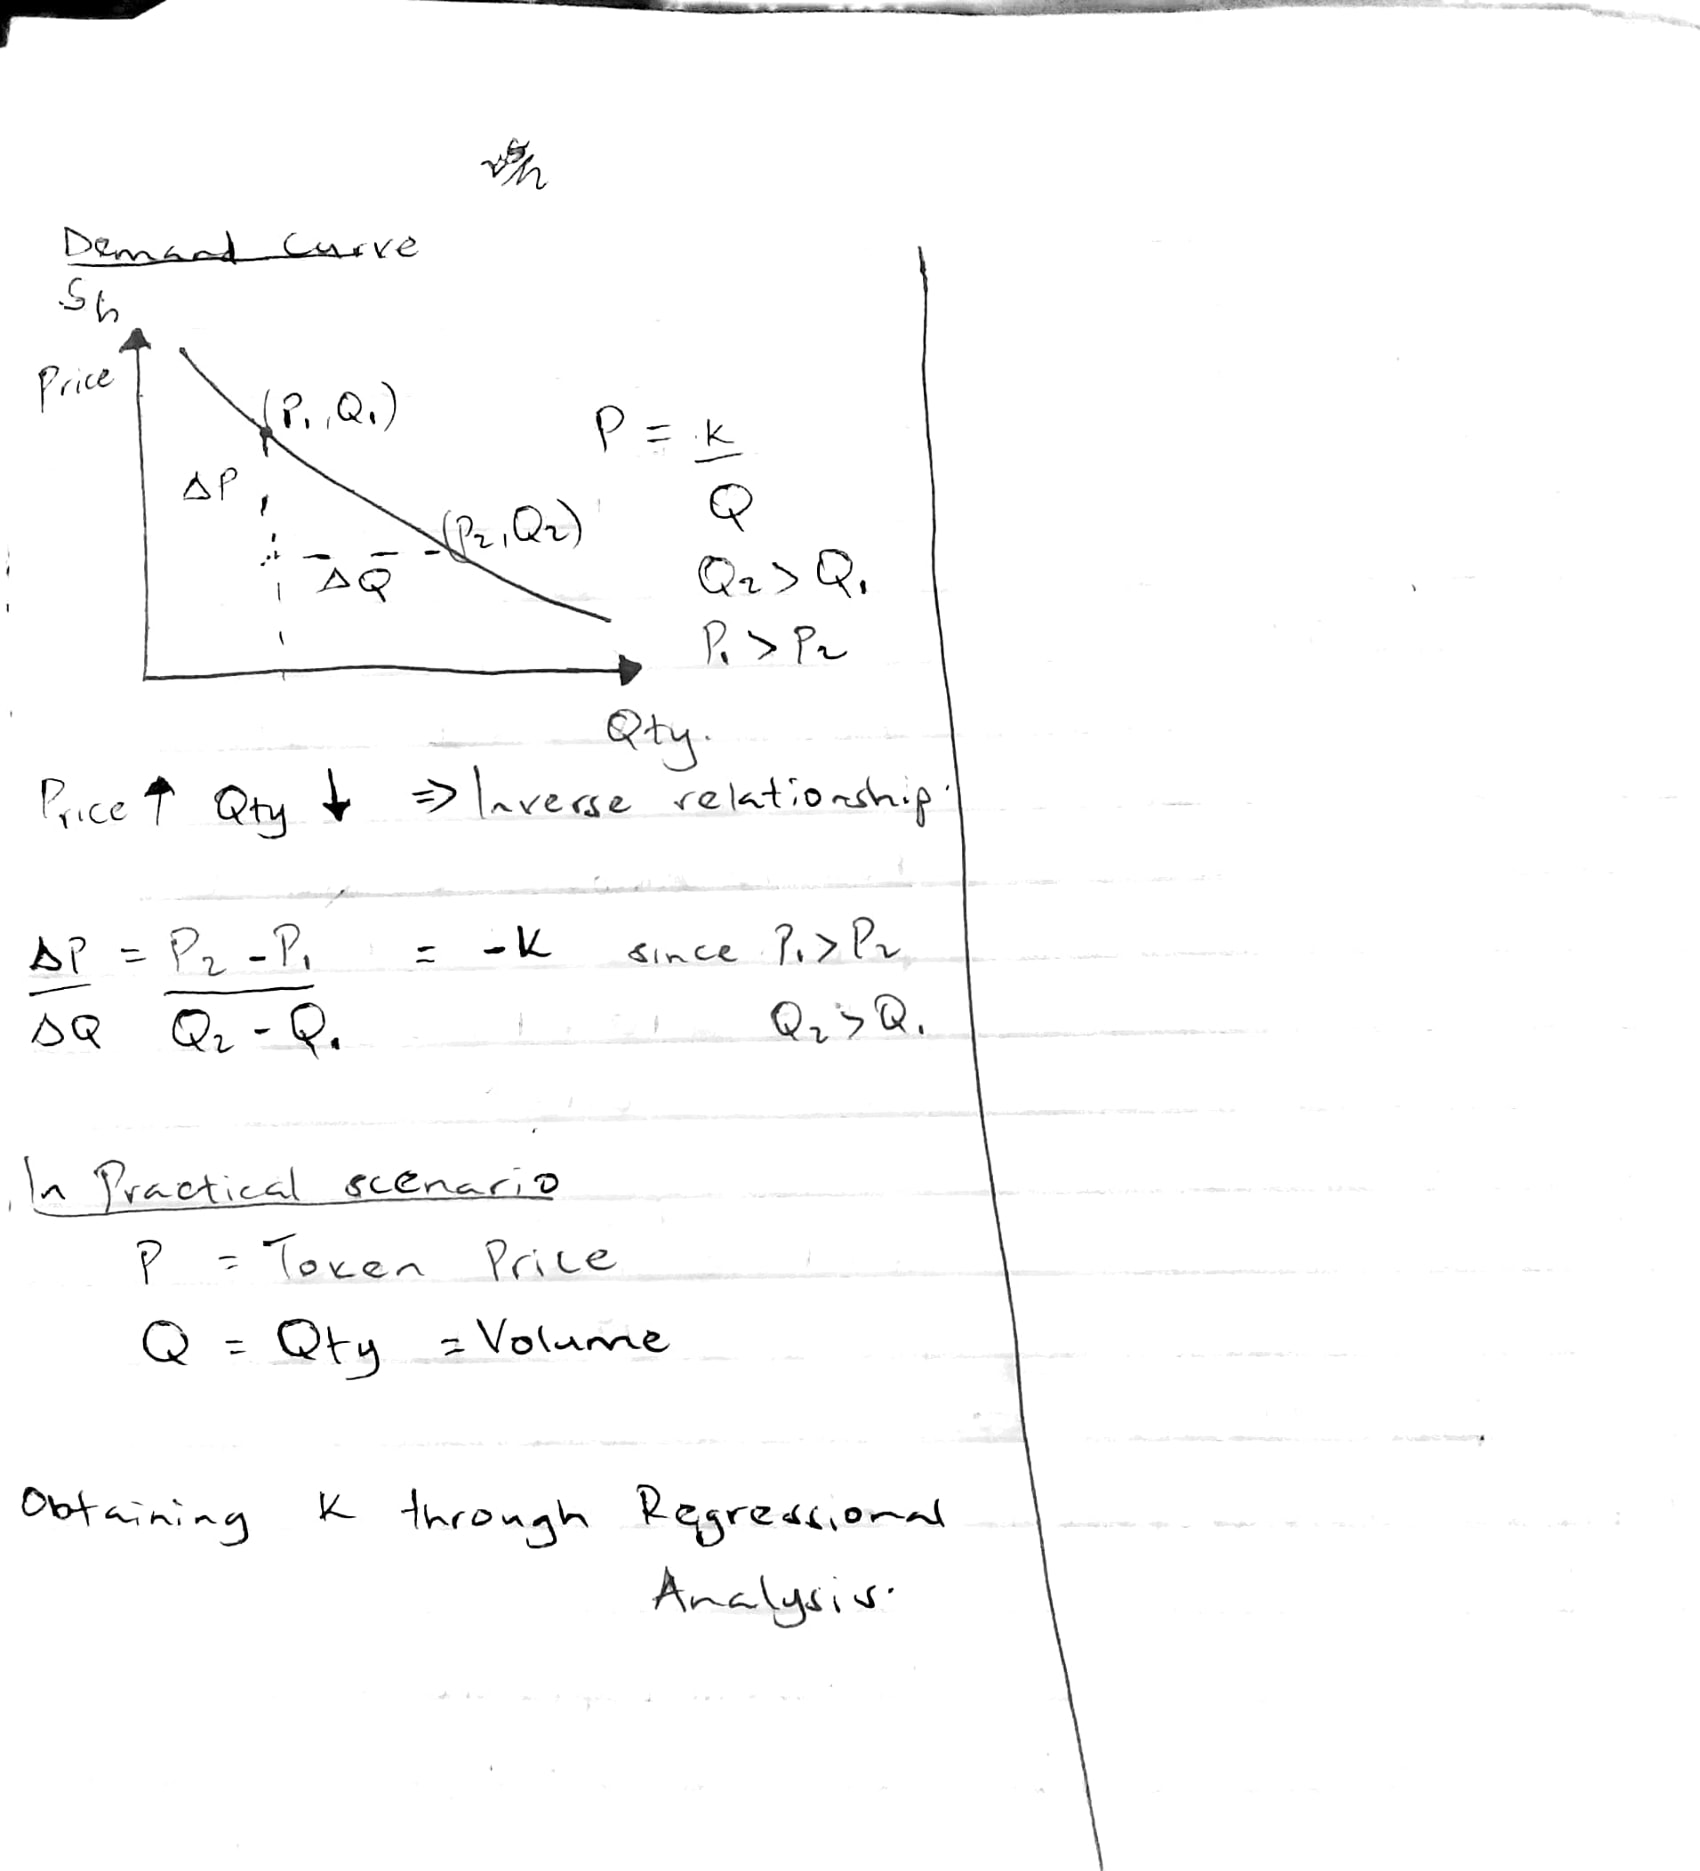 Demand Curve
Sh
Price
(P₁, Q₁)
P = K
Q
ΔP
(P₂, Q₂)
ΔQ
Q₂ > Q₁
P₁ > P₂
Qty.
Price ↑ Qty ↓ ⇒ Inverse relationship.
ΔP = P₂ - P₁ = -K since P₁ > P₂
ΔQ Q₂ - Q₁ Q₂ > Q₁
In Practical scenario
P = Token Price
Q = Qty = Volume
Obtaining K through Regressional
Analysis.